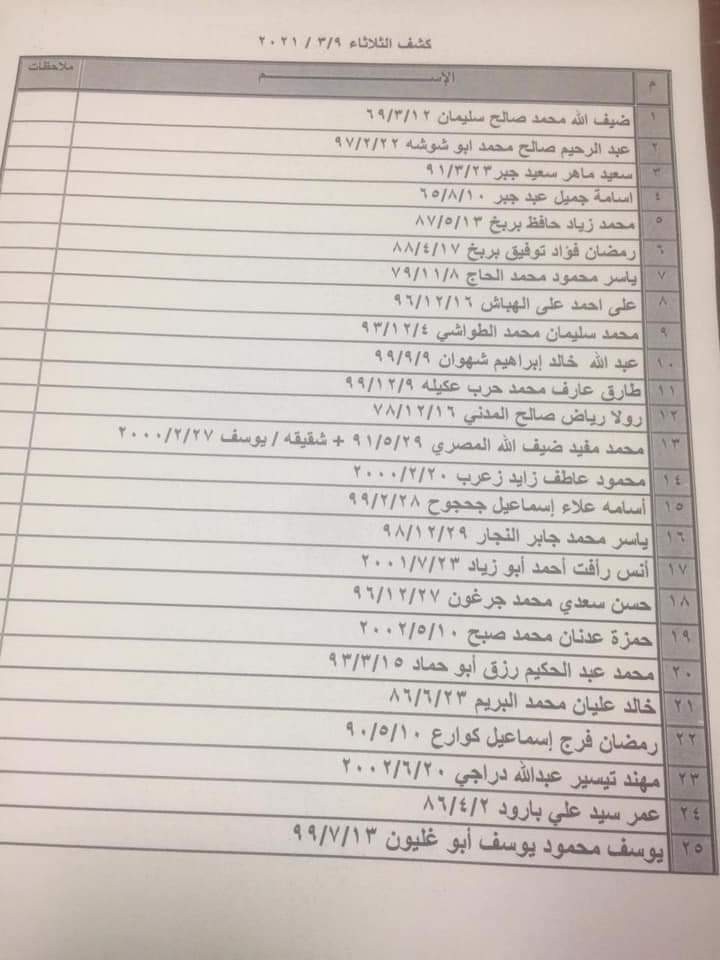 كشف الثلاثاء ٣/٩ / ٢٠٢١
م الإســـــم ملاحظات
١ ضيف الله محمد صالح سليمان ٦٩/٣/١٢
٢ عبد الرحيم صالح محمد ابو شوشه ٩٧/٢/٢٢
٣ سعيد ماهر سعيد جبر ٩١/٣/٢٣
٤ اسامة جميل عبد جبر ٦٥/٨/١٠
٥ محمد زياد حافظ بريخ ٨٧/٥/١٣
٦ رمضان فؤاد توفيق بريخ ٨٨/٤/١٧
٧ ياسر محمود محمد الحاج ٧٩/١١/٨
٨ على احمد على الهباش ٩٦/١٢/١٦
٩ محمد سليمان محمد الطواشي ٩٣/١٢/٤
١٠ عبد الله خالد إبراهيم شهوان ٩٩/٩/٩
١١ طارق عارف محمد حرب عكيله ٩٩/١٢/٩
١٢ رولا رياض صالح المدني ٧٨/١٢/١٦
١٣ محمد مفيد ضيف الله المصري ٩١/٥/٢٩ + شقيقه / يوسف ٢٠٠٠/٢/٢٧
١٤ محمود عاطف زايد زعرب ٢٠٠٠/٢/٢٠
١٥ أسامه علاء إسماعيل جحجوح ٩٩/٢/٢٨
١٦ ياسر محمد جابر النجار ٩٨/١٢/٢٩
١٧ أنس رأفت أحمد أبو زياد ٢٠٠١/٧/٢٣
١٨ حسن سعدي محمد جرغون ٩٦/١٢/٢٧
١٩ حمزة عدنان محمد صبح ٢٠٠٢/٥/١٠
٢٠ محمد عبد الحكيم رزق أبو حماد ٩٣/٣/١٥
٢١ خالد عليان محمد البريم ٨٦/٦/٢٣
٢٢ رمضان فرج إسماعيل كوارع ٩٠/٥/١٠
٢٣ مهند تيسير عبدالله دراجي ٢٠٠٢/٦/٢٠
٢٤ عمر سيد علي بارود ٨٦/٤/٢
٢٥ يوسف محمود يوسف أبو غليون ٩٩/٧/١٣